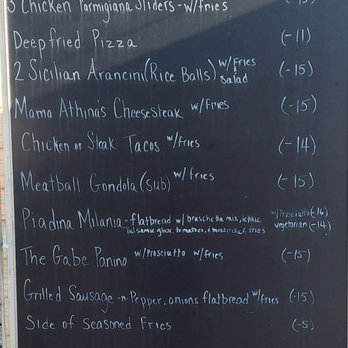 3 Chicken Parmigiana Sliders - w/fries (-15)
Deep fried Pizza (-11)
2 Sicilian Arancini (Rice Balls) w/ Fries + Salad (-15)
Mama Athina's CheeseSteak w/fries (-15)
Chicken or Steak Tacos w/fries (-14)
Meatball Gondola (sub) w/fries (-15)
Piadina Milania - flatbread w/ bruschetta mix, w/Prosciutto (-16)
balsamic glaze, tomatoes, & mozzarella & fries vegetarian (-14)
The Gabe Panino w/Prosciutto w/fries (-15)
Grilled Sausage -n- Pepper, onions flatbread w/fries (-15)
Side of Seasoned Fries (-5)